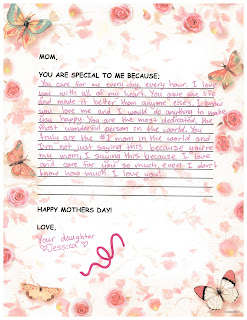 MOM,
YOU ARE SPECIAL TO ME BECAUSE:
You care for me every day, every hour. I love
you with all of my heart. You gave me life
and made it better than anyone else's. I know
you love me and I would do anything to make
you happy. You are the most dedicated, the
most wonderful person in the world. You
truly are the #1 mom in the world and
I'm not just saying this because you're
my mom, I saying this because I love
and care for you so much, even I don't
know how much I love you!
HAPPY MOTHERS DAY!
LOVE,
Your daughter
♡Jessica♡